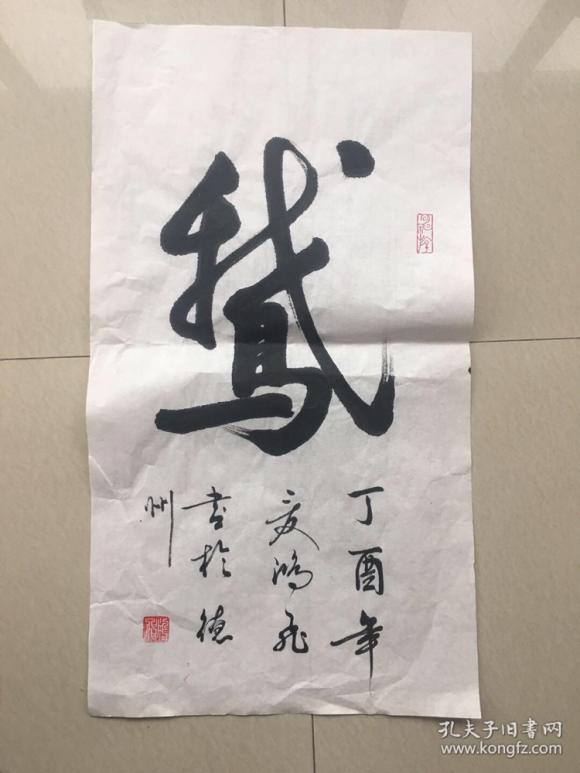 鵝
丁酉年
夏鴻飛
书於德
州
孔夫子旧书网
www.kongfz.com